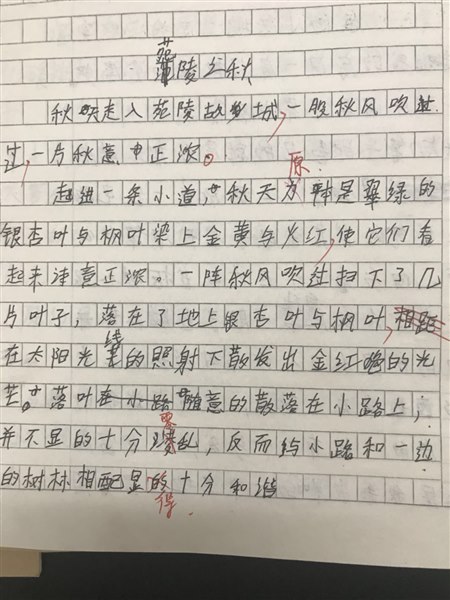 苑陵之秋
秋天走入苑陵故城,一股秋风吹过
过,一片秋意中正浓。
走进一条小道,秋天为原本是翠绿的
银杏叶与枫叶染上金黄与火红,使它们看
起来诗意正浓。一阵秋风吹过扫下了几
片叶子,落在了地上银杏叶与枫叶,相距
在太阳光线的照射下散发出金红的光
芒。落叶在小路随意的散落在小路上;
并不显的十分凌乱,反而与小路和一边
的树林相配显的十分和谐
得